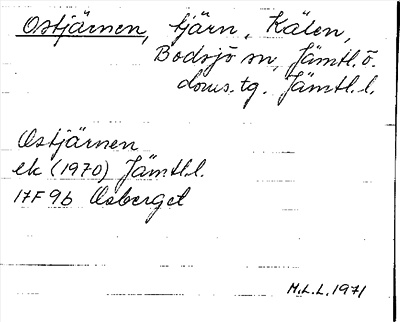 Ostjärnen, tjärn, Kälen,
Bodsjö sn, Jämtl. ö.
doms. tg. Jämtl. l.
Ostjärnen
ek (1970) Jämtl. l.
17F 9b Osberget
M.L.L. 1971